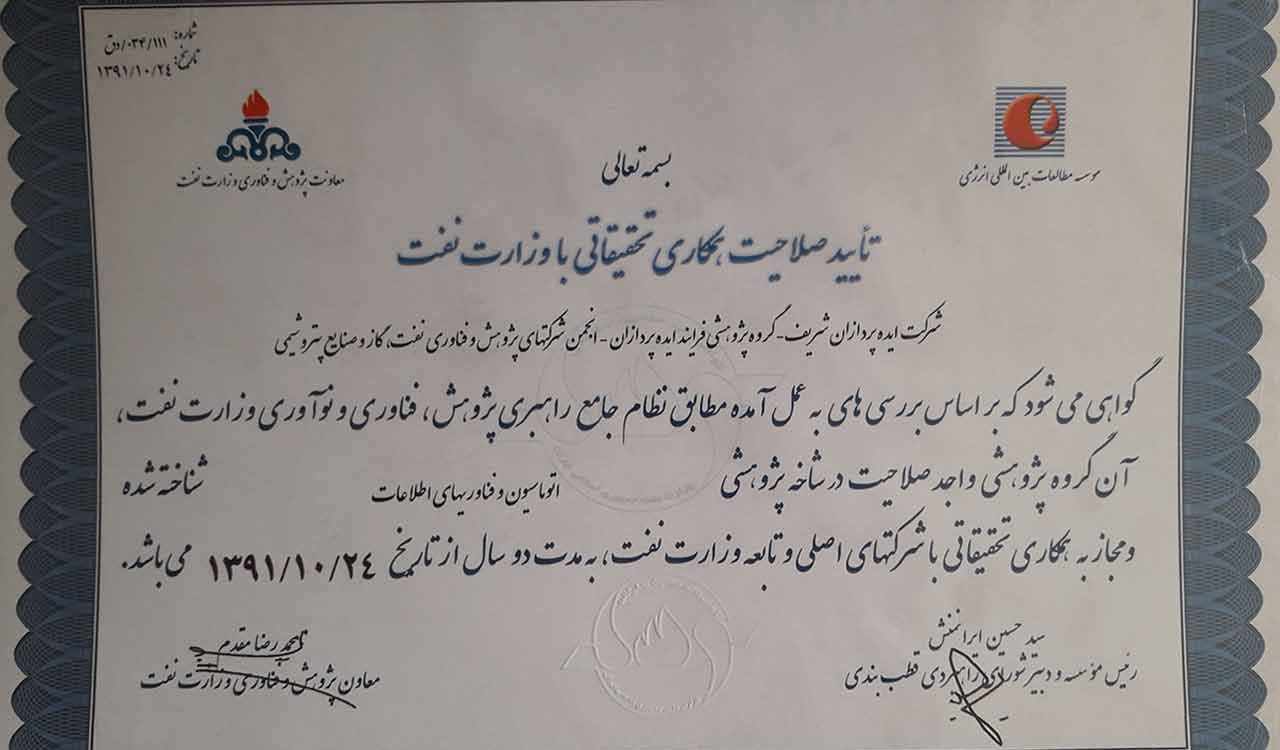 شماره: ۰۳۴/۱۱۱/دق
تاریخ: ۱۳۹۱/۱۰/۲۴
معاونت پژوهش و فناوری وزارت نفت
موسسه مطالعات بین المللی انرژی
بسمه تعالی
تأیید صلاحیت همکاری تحقیقاتی با وزارت نفت
شرکت ایده پردازان شریف- گروه پژوهشی فرایند ایده پردازان - انجمن شرکتهای پژوهش و فناوری نفت، گاز و صنایع پتروشیمی
گواهی می شود که بر اساس بررسی های به عمل آمده مطابق نظام جامع راهبری پژوهش، فناوری و نوآوری وزارت نفت،
آن گروه پژوهشی واجد صلاحیت در شاخه پژوهشی اتوماسیون و فناوریهای اطلاعات شناخته شده
و مجاز به همکاری تحقیقاتی با شرکتهای اصلی و تابعه وزارت نفت، به مدت دو سال از تاریخ ۱۳۹۱/۱۰/۲۴ می باشد.
سید حسین ایرانمنش
رئیس مؤسسه و دبیر شورای راهبردی قطب بندی
محمد رضا مقدم
معاون پژوهش و فناوری وزارت نفت